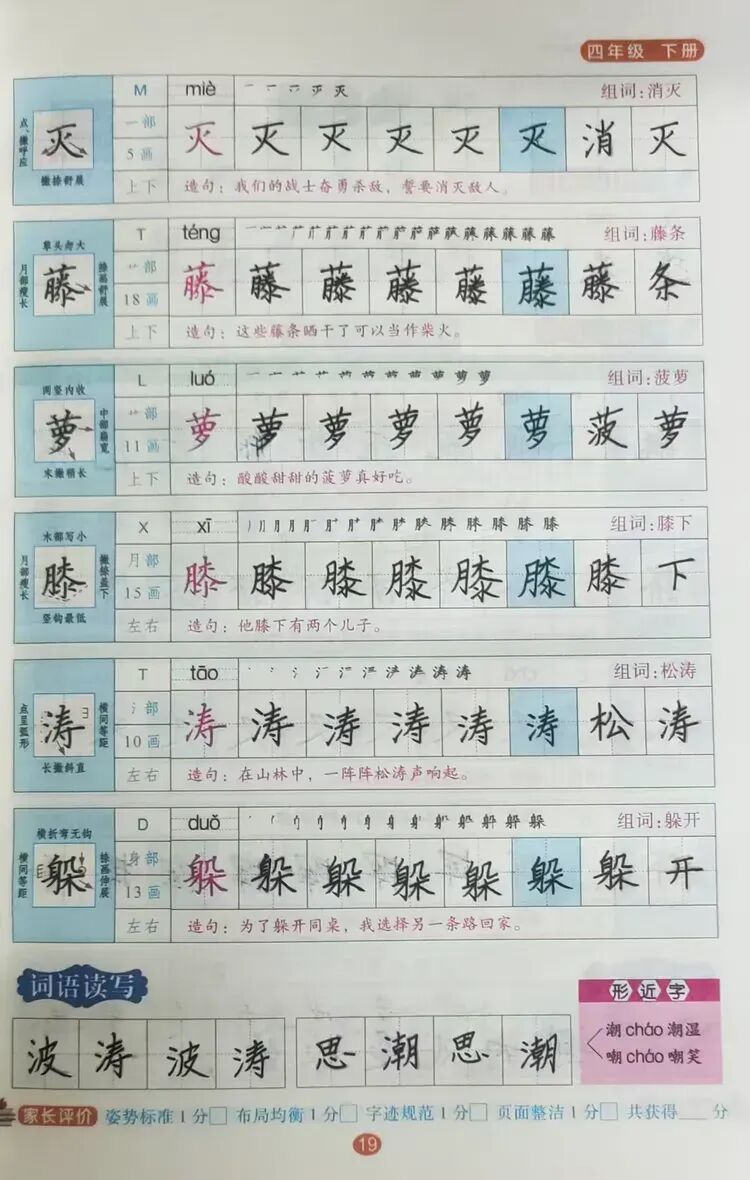 四年级 下册
点、撇呼应
灭
撇捺舒展
M miè 组词:消灭
一部
5画
上下
灭 灭 灭 灭 灭 灭 消 灭
造句：我们的战士奋勇杀敌，誓要消灭敌人。
草头勿大
月部瘦长
藤
捺画舒展
T téng 组词:藤条
艹部
18画
上下
藤 藤 藤 藤 藤 藤 藤 条
造句：这些藤条晒干了可以当作柴火。
两竖内收
萝
中部扁宽
末撇稍长
L luó 组词:菠萝
艹部
11画
上下
萝 萝 萝 萝 萝 萝 菠 萝
造句：酸酸甜甜的菠萝真好吃。
木部写小
月部瘦长
膝
撇捺盖下
竖钩最低
X xī 组词:膝下
月部
15画
左右
膝 膝 膝 膝 膝 膝 膝 下
造句：他膝下有两个儿子。
点呈弧形
涛
横间等距
长撇斜直
T tāo 组词:松涛
氵部
10画
左右
涛 涛 涛 涛 涛 涛 松 涛
造句：在山林中，一阵阵松涛声响起。
横折弯无钩
横间等距
躲
捺画伸展
D duǒ 组词:躲开
身部
13画
左右
躲 躲 躲 躲 躲 躲 躲 开
造句：为了躲开同桌，我选择另一条路回家。
词语读写
波 涛 波 涛 思 潮 思 潮
形近字
潮 cháo 潮湿
嘲 cháo 嘲笑
家长评价 姿势标准1分□ 布局均衡1分□ 字迹规范1分□ 页面整洁1分□ 共获得___分
19